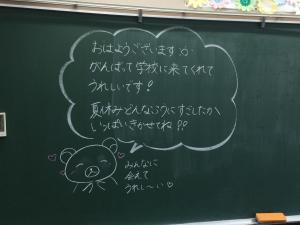 おはようございます
がんばって学校に来てくれて
うれしいです!
夏休みどんなふうにすごしたか
いっぱいきかせてね!!
みんなに
会えて
うれし〜い♡